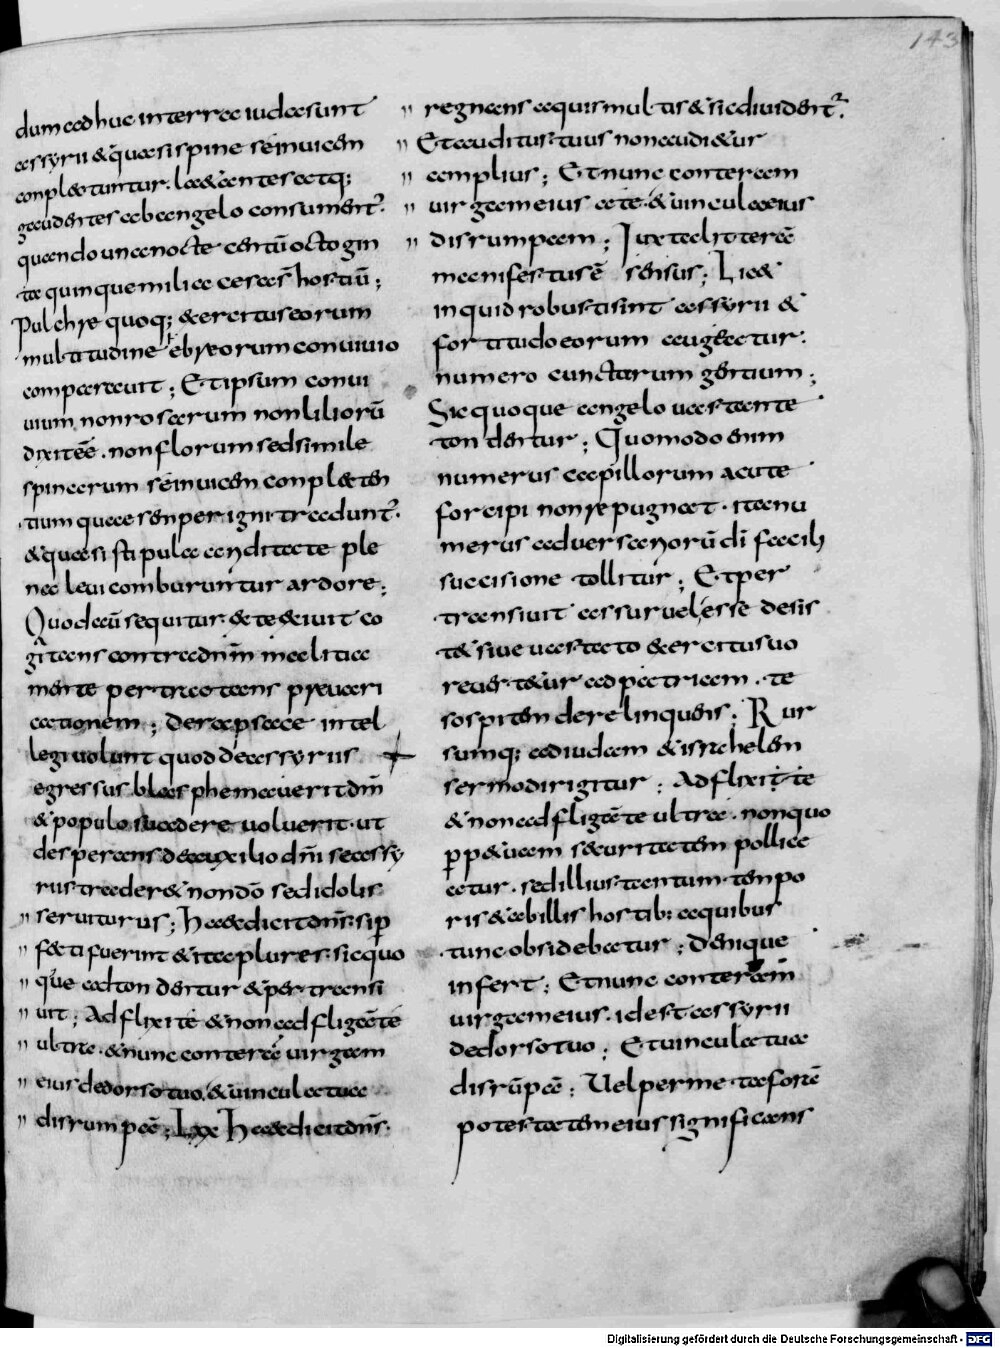 143
dum adhuc in terra iudae sunt
assyrii & quasi spine se inuicem
conplectuntur. lae&antes atq;
gaudentes ab angelo consument̃.
quando una nocte centũ octogin
ta quinque milia cesa s̃ hostiũ;
Pulchre quoq; exercitus eorum
multitudine ebreorum conuiuio
comparauit; Et ipsum conui
uium non rosarum non liliorũ
dixit eẽ. non florum sed simile
spinarum se inuicem conplecten
tium quae semper igni tradunt̃.
& quasi stipula aridi tacte ple
na leui comburuntur ardore;
Quod aũ sequitur. ex te exiuit co
gitans contra dn̄m in alitia
mente pertractans preuari
cationem; de rapsace intel
legi uolunt quod de assyriis
egressus blasphemauerit dm̄
& populo suadere uoluerit. ut
desperans de auxilio dn̄i se assy
rus trader& non dõ sed idolis
seruiturus; Haec dicit dn̄s; si p
fecti fuerint & ita plures. sic quo
que adtondentur & pertransi
uit; Adflixi te & non adfligã te
ultra. & nunc conterã uirgam
eius de dorso tuo, & uincula tua
disrumpã; Lxx Haec dicit dn̄s.
regnans aquis multis & sic diuident̃.
Et auditus tuus non audietur
amplius; Et nunc conteram
uirgam eius a te. & uincula eius
disrumpam; Iuxta litterã
manifestus ẽ sensus; Lic&
inquid robusti sint assyrii &
fortitudo eorum augeatur.
numero cunctarum gentium;
Sic quoque angelo uastante
tondentur; Quomodo enim
numerus capillorum acute
forcipi non repugnat. ita nu
merus aduersariorũ di facili
succisione tollitur; Et per
transiuit assur uel esse desis
t& siue uastato exercitu suo
reuert&ur ad patriam. te
sospitem derelinquens; Rur
sumq; ad iudam & israhelem
sermo dirigitur; Adflixi te
& non adfligã te ultra. non quo
p̱p&uam securitatem pollice
atur. sed illius tantum tempo
ris & ab illis hostib; a quibus
tunc obsidebatur; Denique
infert; Et nunc conteram
uirgam eius. id est assyrii
de dorso tuo; Et uincula tua
disrũpã; Uel per metaforã
potestatem eius significans
Digitalisierung gefördert durch die Deutsche Forschungsgemeinschaft - DFG